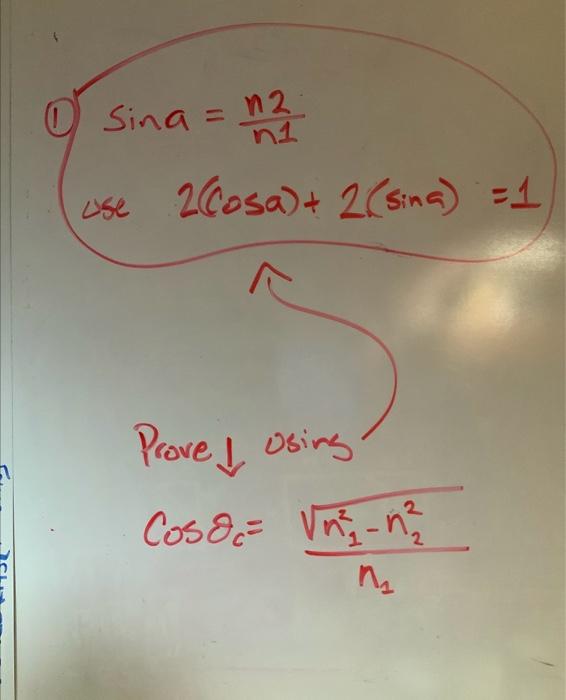 ① sina = n2/n1
use 2(cosa) + 2(sina) = 1
Prove ↓ using
Cosθ_c = √(n₁² - n₂²)/n₁